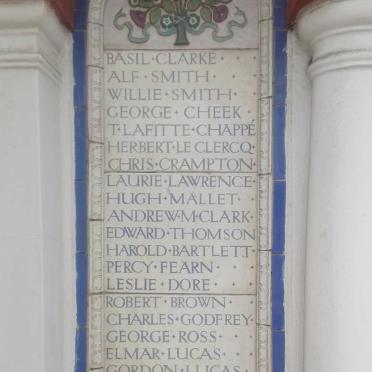 BASIL·CLARKE·
ALF·SMITH·
WILLIE·SMITH·
GEORGE·CHEEK·
T·LAFITTE·CHAPPÉ
HERBERT·LE CLERCQ·
CHRIS·CRAMPTON·
LAURIE·LAWRENCE·
HUGH·MALLET·
ANDREW·M·CLARK·
EDWARD·THOMSON
HAROLD·BARTLETT·
PERCY·FEARN·
LESLIE·DORE·
ROBERT·BROWN·
CHARLES·GODFREY·
GEORGE·ROSS·
ELMAR·LUCAS·
GORDON·LUCAS·